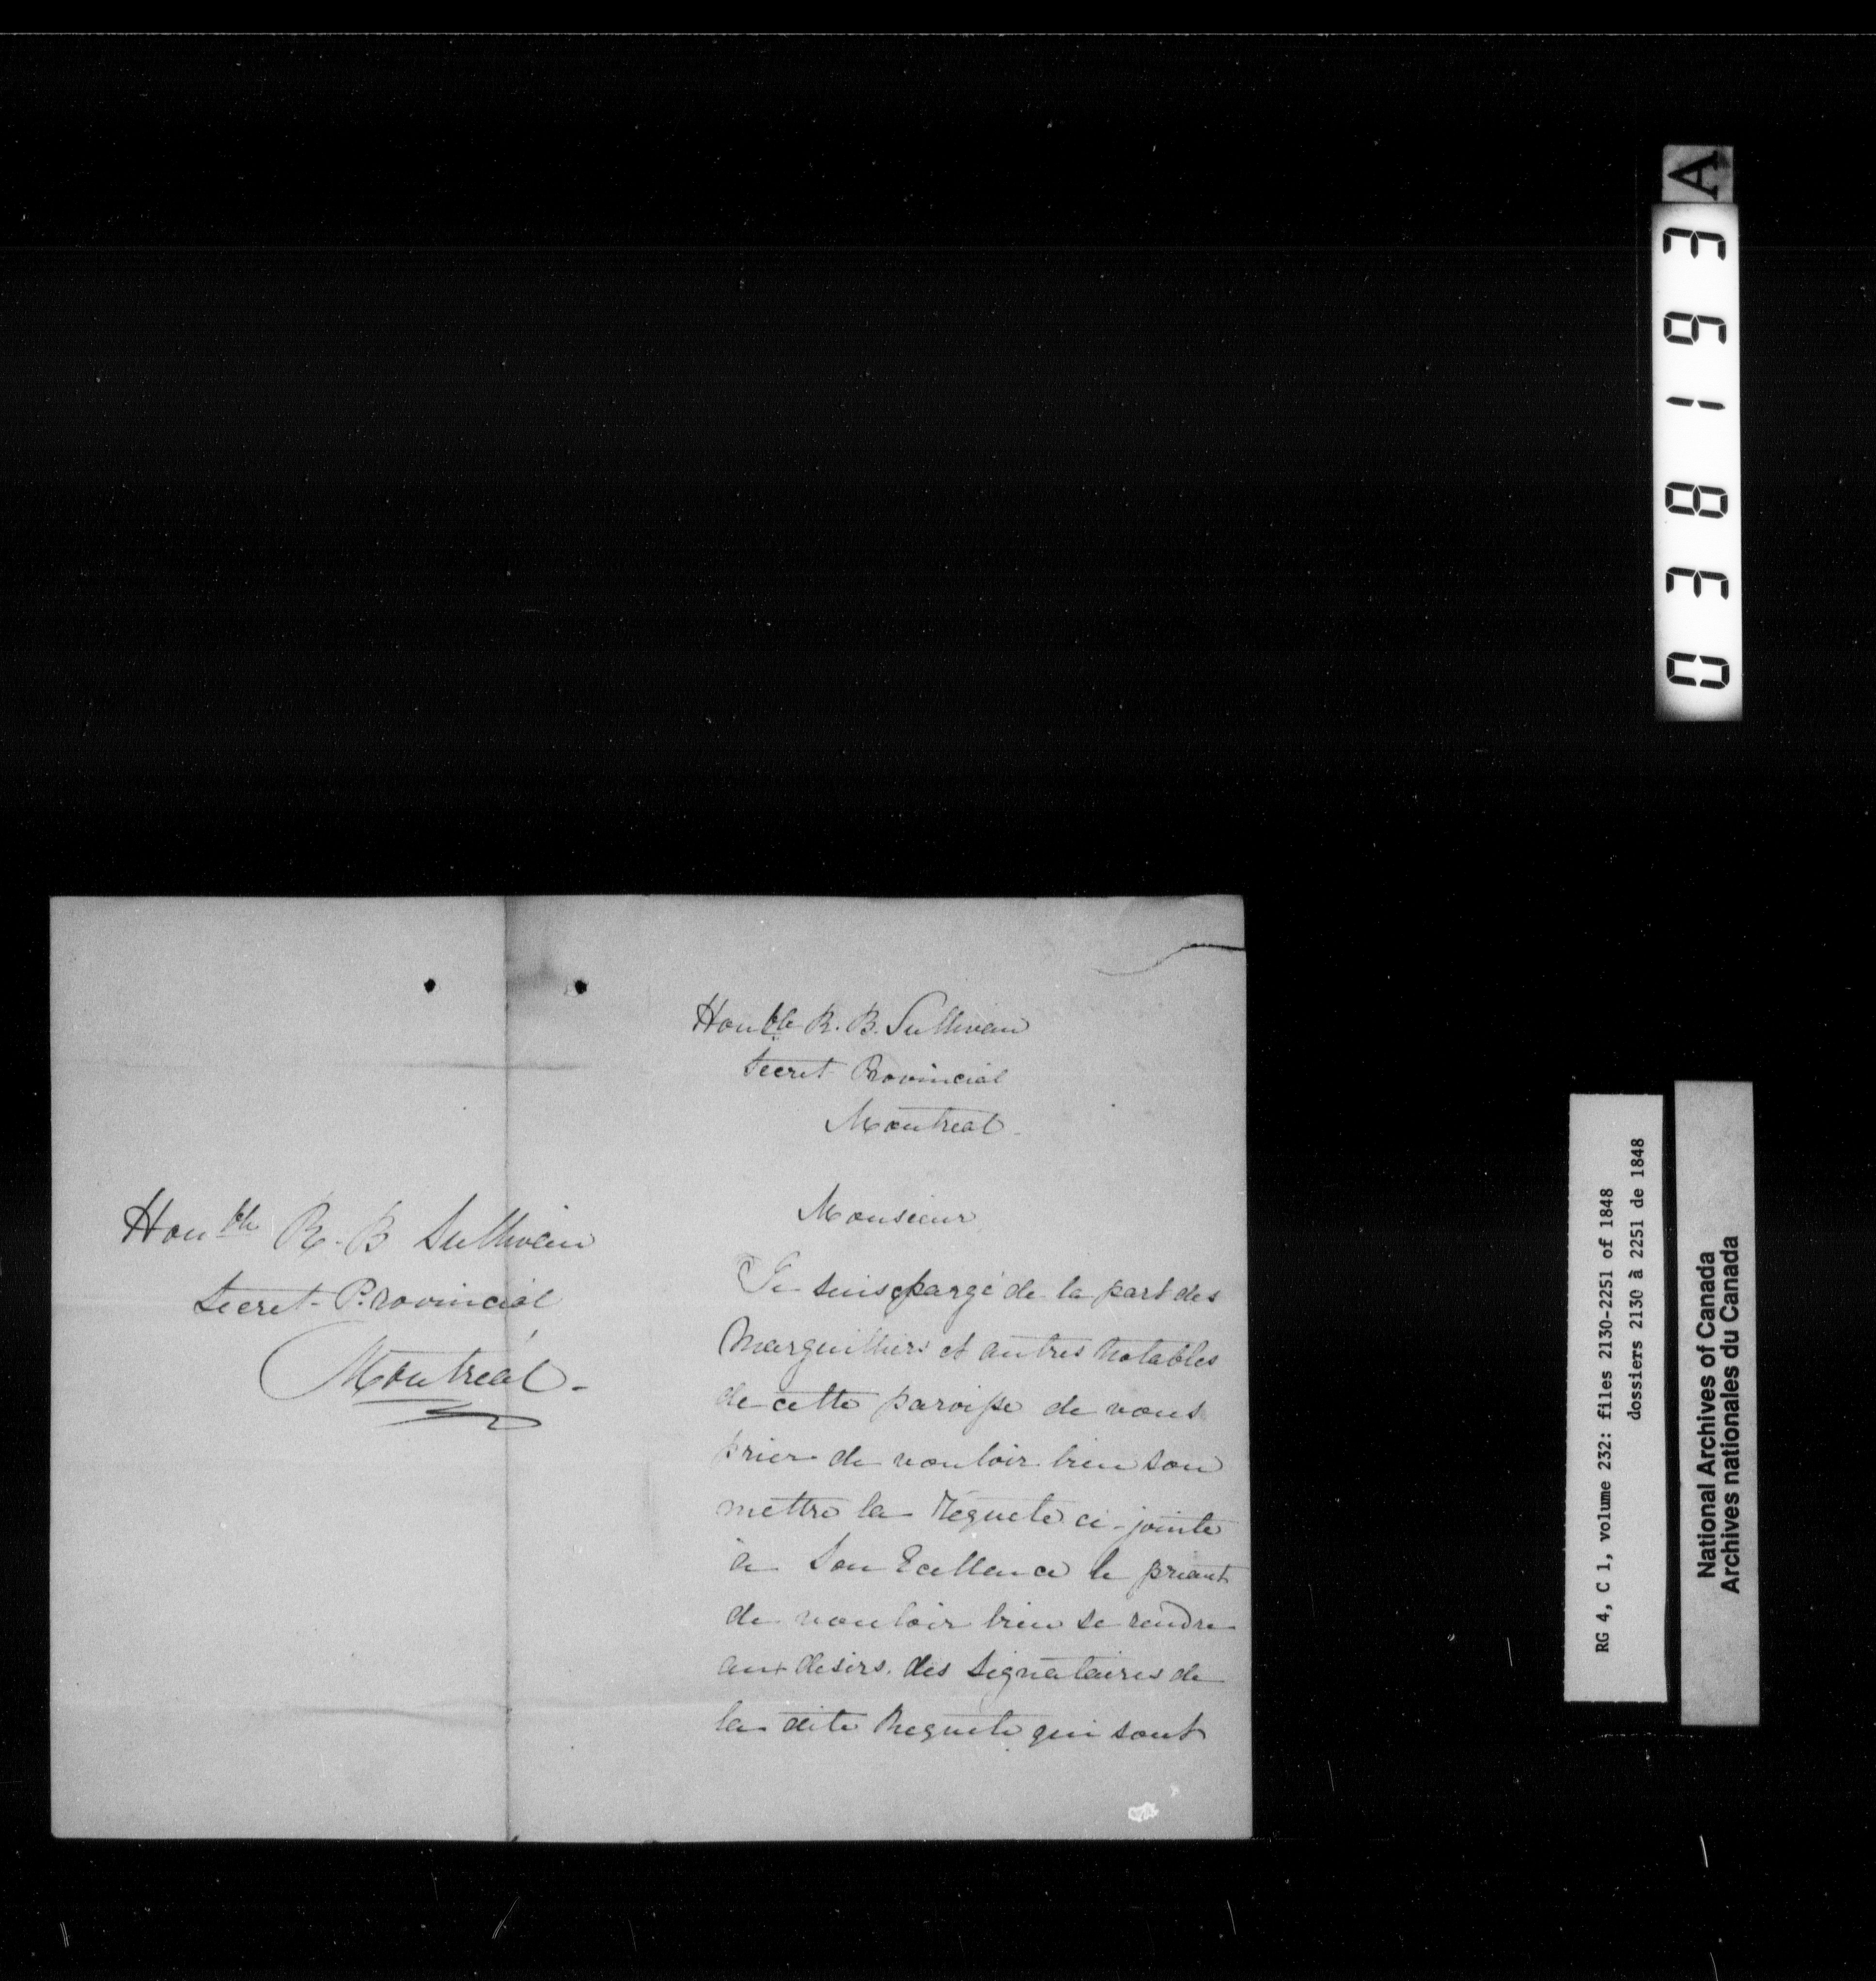 Honble R. B. Sullivan
Secret Provincial
Montreal
Honble R. B. Sullivan
Secret Provincial
Montreal -
Monsieur
Je suis chargé de la part des
Marguilliers et autres Notables
de cette paroisse de vous
prier de vouloir bien sou
mettre la Requete ci-jointe
à Son Ecellance le priant
de vouloir bien se rendre
aux desirs des signataires de
la dite Requete qui sont
A
038193
RG 4, C 1, volume 232: files 2130-2251 of 1848
dossiers 2130 à 2251 de 1848
National Archives of Canada
Archives nationales du Canada